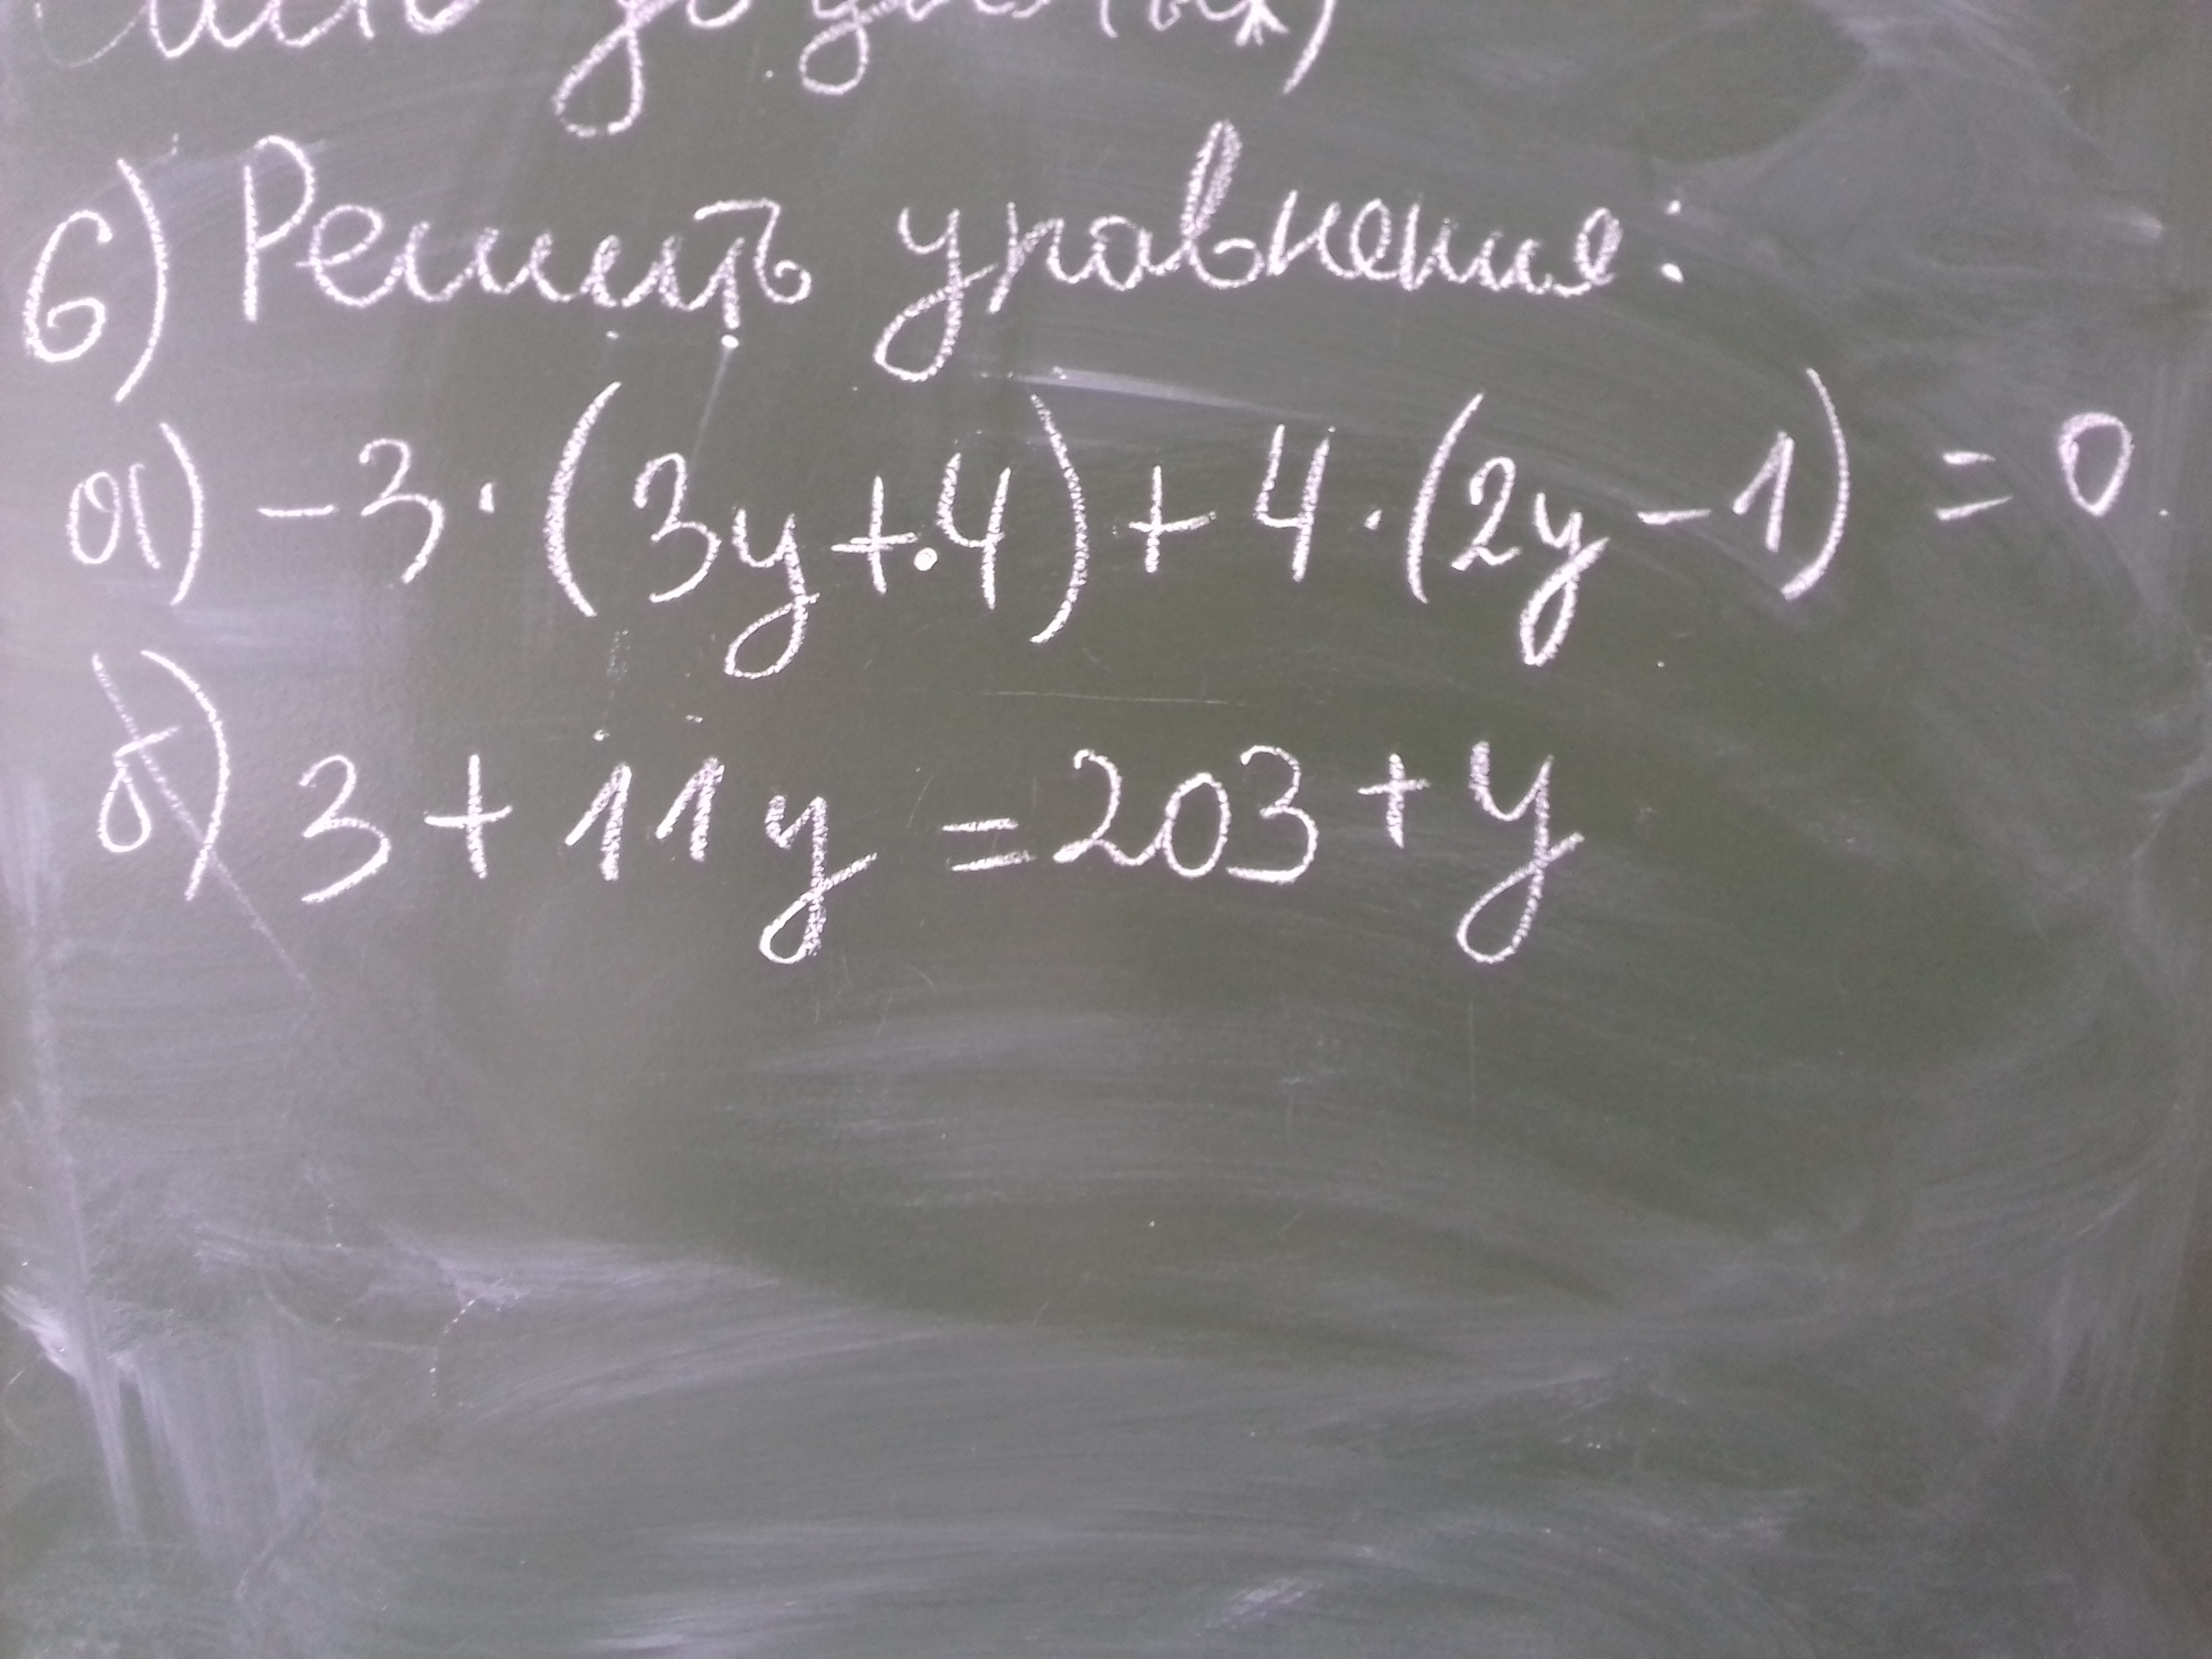 6) Решить уравнения:
а) -3·(3y+4)+4·(2y-1)=0
б) 3+11y=203+y